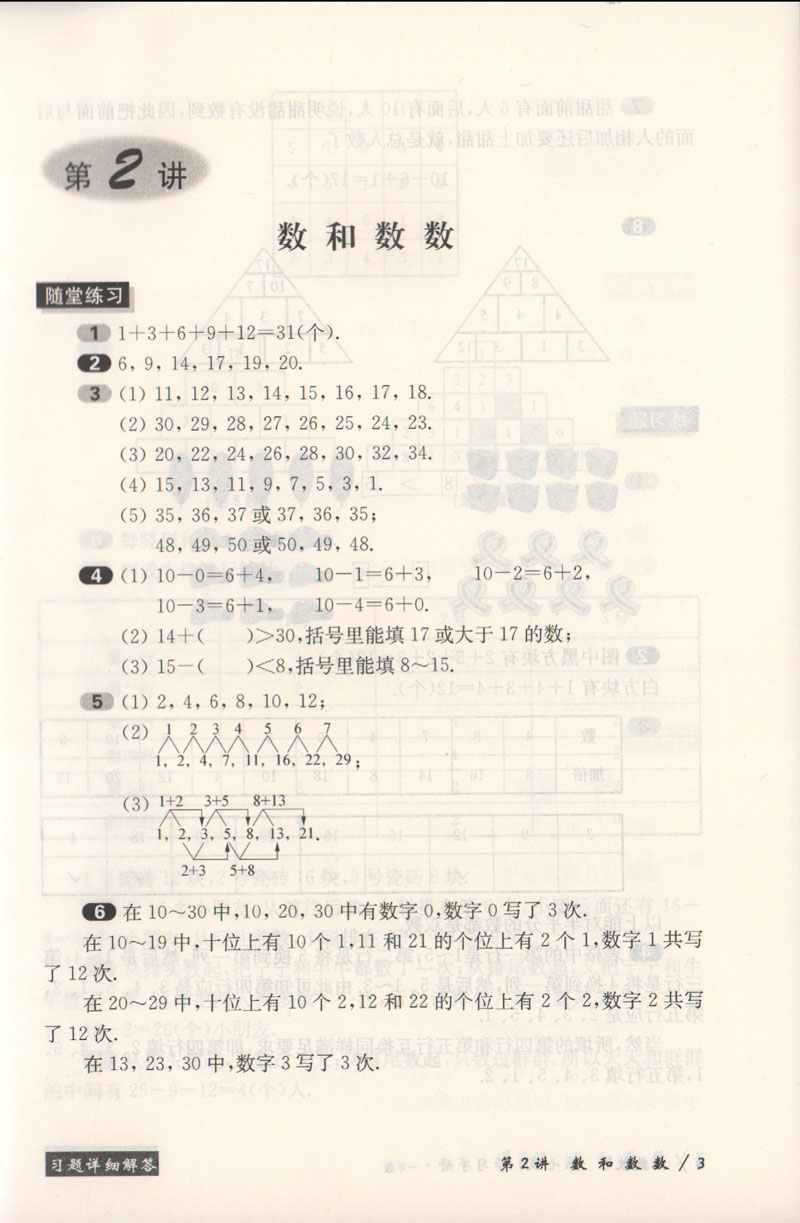 第2讲
数和数数
随堂练习
1 1+3+6+9+12=31(个).
2 6, 9, 14, 17, 19, 20.
3 (1) 11, 12, 13, 14, 15, 16, 17, 18.
(2) 30, 29, 28, 27, 26, 25, 24, 23.
(3) 20, 22, 24, 26, 28, 30, 32, 34.
(4) 15, 13, 11, 9, 7, 5, 3, 1.
(5) 35, 36, 37或37, 36, 35;
48, 49, 50或50, 49, 48.
4 (1) 10-0=6+4, 10-1=6+3, 10-2=6+2,
10-3=6+1, 10-4=6+0.
(2) 14+( )>30,括号里能填17或大于17的数;
(3) 15-( )<8,括号里能填8~15.
5 (1) 2, 4, 6, 8, 10, 12;
(2) 1 2 3 4 5 6 7
1, 2, 4, 7, 11, 16, 22, 29;
(3) 1+2 3+5 8+13
1, 2, 3, 5, 8, 13, 21.
2+3 5+8
6 在10~30中,10, 20, 30中有数字0,数字0写了3次.
在10~19中,十位上有10个1,11和21的个位上有2个1,数字1共写
了12次.
在20~29中,十位上有10个2,12和22的个位上有2个2,数字2共写
了12次.
在13, 23, 30中,数字3写了3次.
习题详细解答
第2讲 数和数数 / 3